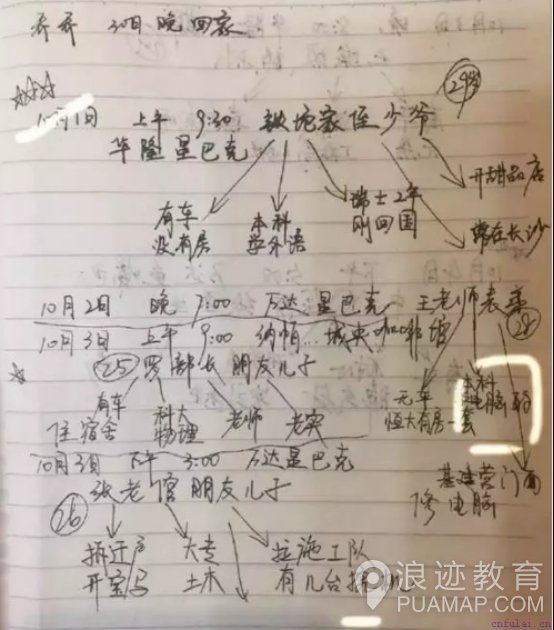 乔乔 30日晚回家
☆☆☆
10月1日 上午 9:30 铁坨家侄少爷 29岁
华隆星巴克
有车
没有房
本科
学外语
瑞士2年
刚回国
开甜品店
常在长沙
10月2日 晚 7:00 万达星巴克 王老师表弟 28
无车
恒大有房一套
本科
电脑
基建营门面
修电脑
☆
10月3日 上午 9:00 纳帕... 城央咖啡馆
25 罗部长朋友儿子
有车
住宿舍
科大
物理
老师
老实
10月3日 下午 3:00 万达星巴克
26 张老官朋友儿子
拆迁户
开宝马
大专
土木
拉施工队
有几台挖机
浪迹教育
PUAMAP.COM
cnfulai.cn